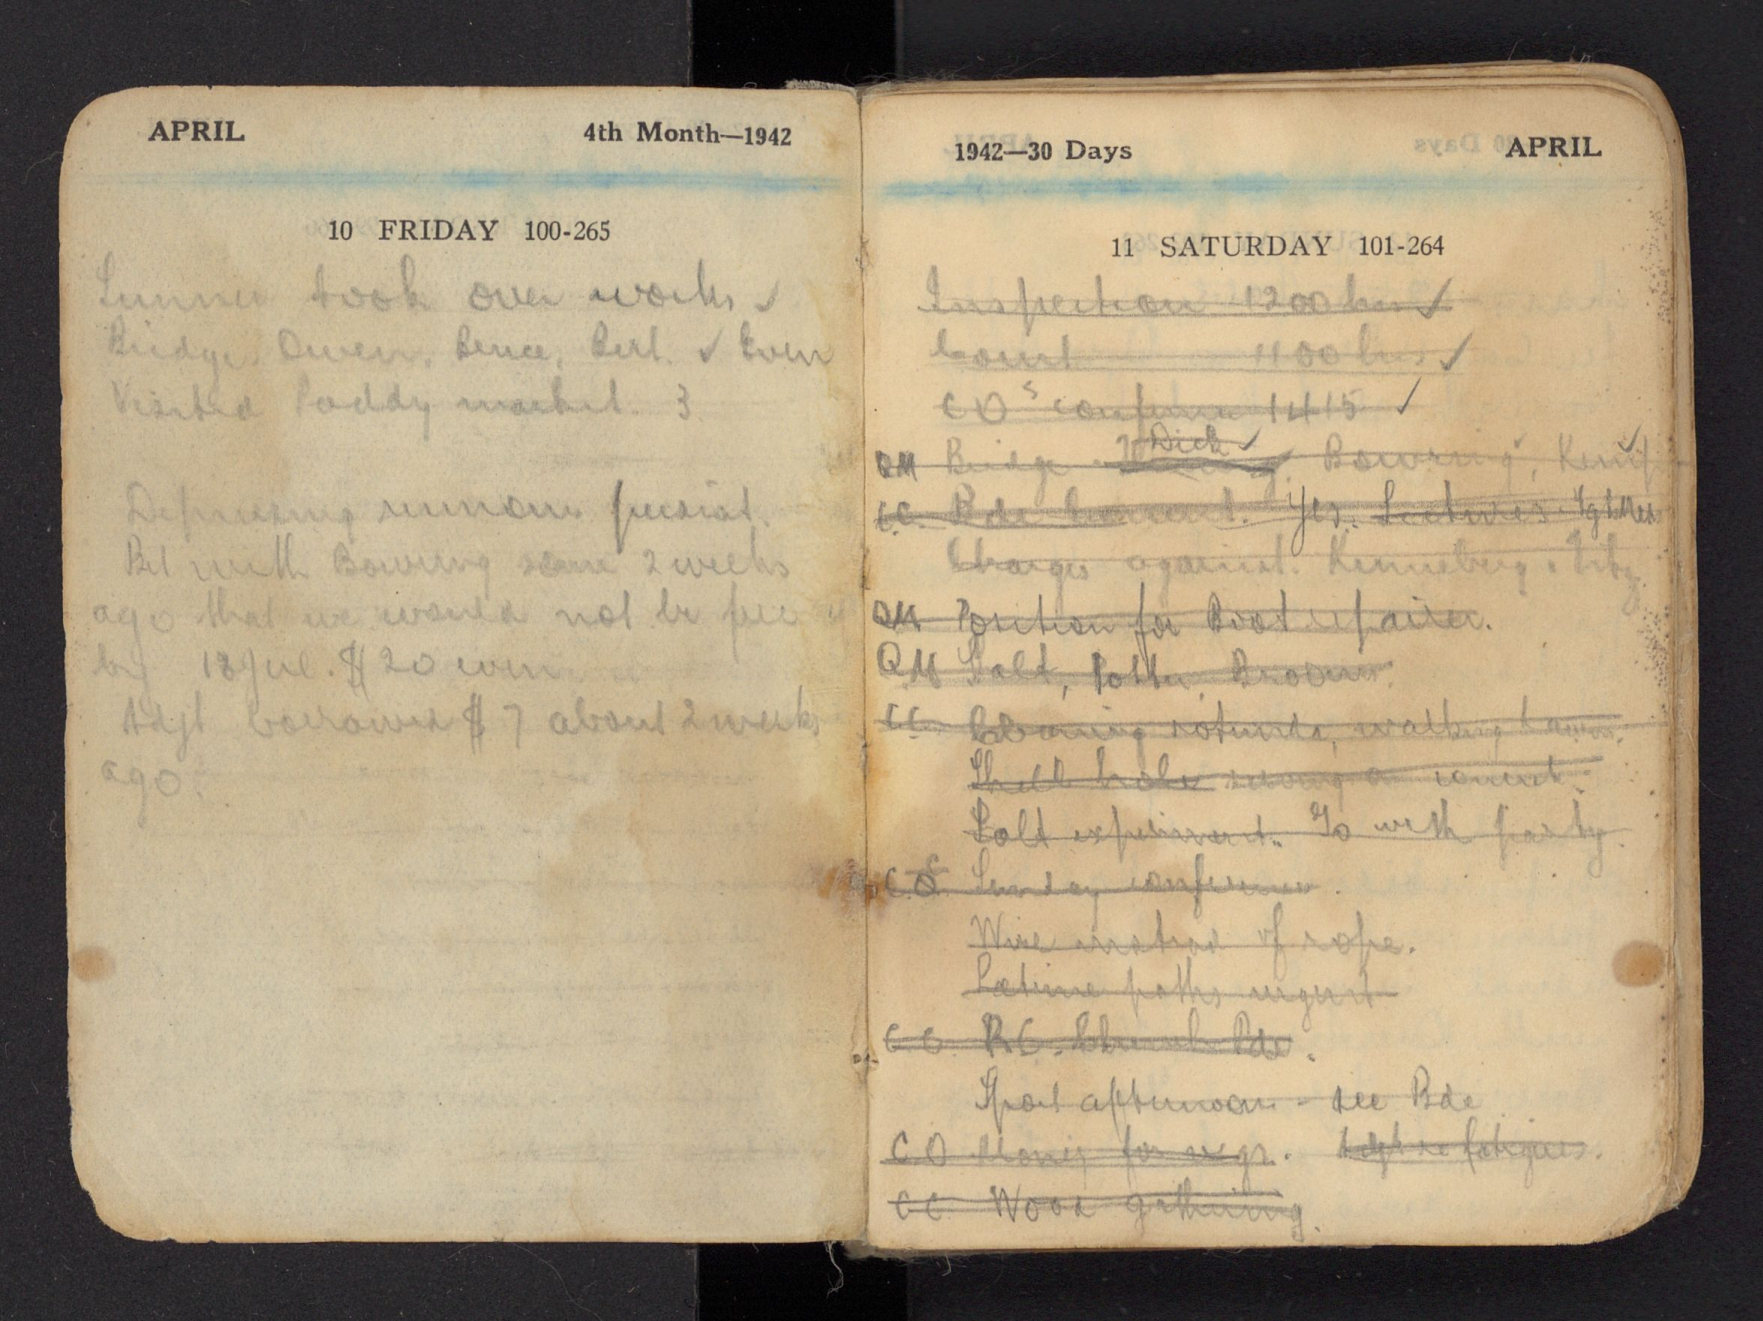 APRIL 4th Month—1942
10 FRIDAY 100-265
took over works ✓
Bridge. Owen, Bence, Bert. ✓ Even
Visited Paddy market. 3
Depressing rumours persist.
Bet with Bowring some 2 weeks
ago that we would not be free
by 18 Jul. $20 even
Adjt borrowed $7 about 2 weeks
ago.
1942—30 Days APRIL
11 SATURDAY 101-264
Inspection 1200 hrs ✓
Court 1100 hrs ✓
COs conference 1415 ✓
QM Bridge Dick ✓ Bowring, Kemp
CC. Bde Yes. Lectures
Charges against.
QM Position for Boot repairer.
QM Salt, Potter, Brown.
CC. Cleaning rotunda, walking
Shell hole wrong on cement.
Salt experiment. Go with party.
COs Sunday conference.
Wire instead of rope.
Latrine paths urgent
CC R.C. Church Pde.
Sport afternoon - see Bde
CO Money for Adjt re fatigues.
CC Wood gathering.